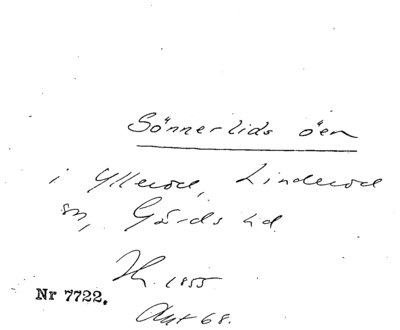 Sönnerlids öen
i Ylleröd, Linderöd
sn, Gärds hd
1855
Nr 7722.
Akt 68.